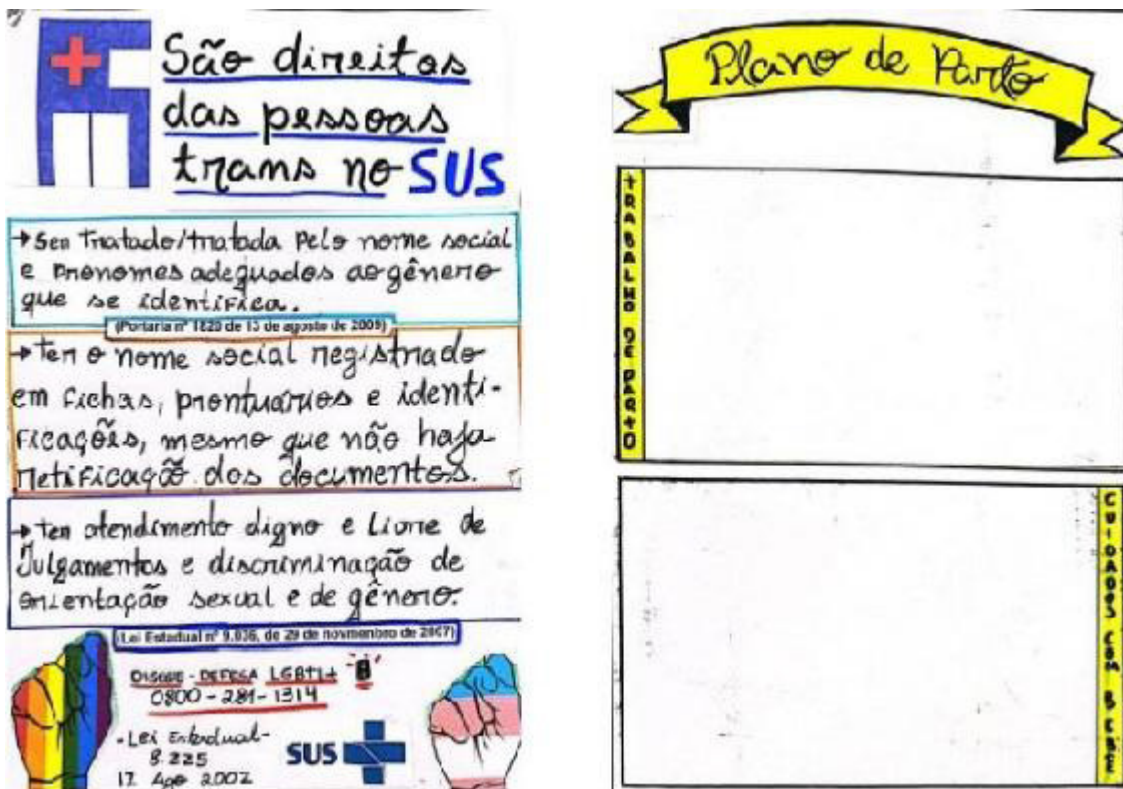 São direitos
das pessoas
trans no SUS
→ Ser tratado/tratada pelo nome social
e pronomes adequados ao gênero
que se identifica.
(Portaria nº 1820 de 13 de agosto de 2009)
→ Ter o nome social registrado
em fichas, prontuários e identi-
ficações, mesmo que não haja
retificação dos documentos.
→ Ter atendimento digno e livre de
Julgamentos e discriminação de
orientação sexual e de gênero.
(Lei Estadual nº 9.036, de 29 de novmenbro de 2007)
DISQUE - DEFESA LGBTI+
0800-281-1314
-Lei Estadual-
8.225
17 Ago 2002
SUS
Plano de Parto
TRABALHO DE PARTO
CUIDADOS COM BEBÊ